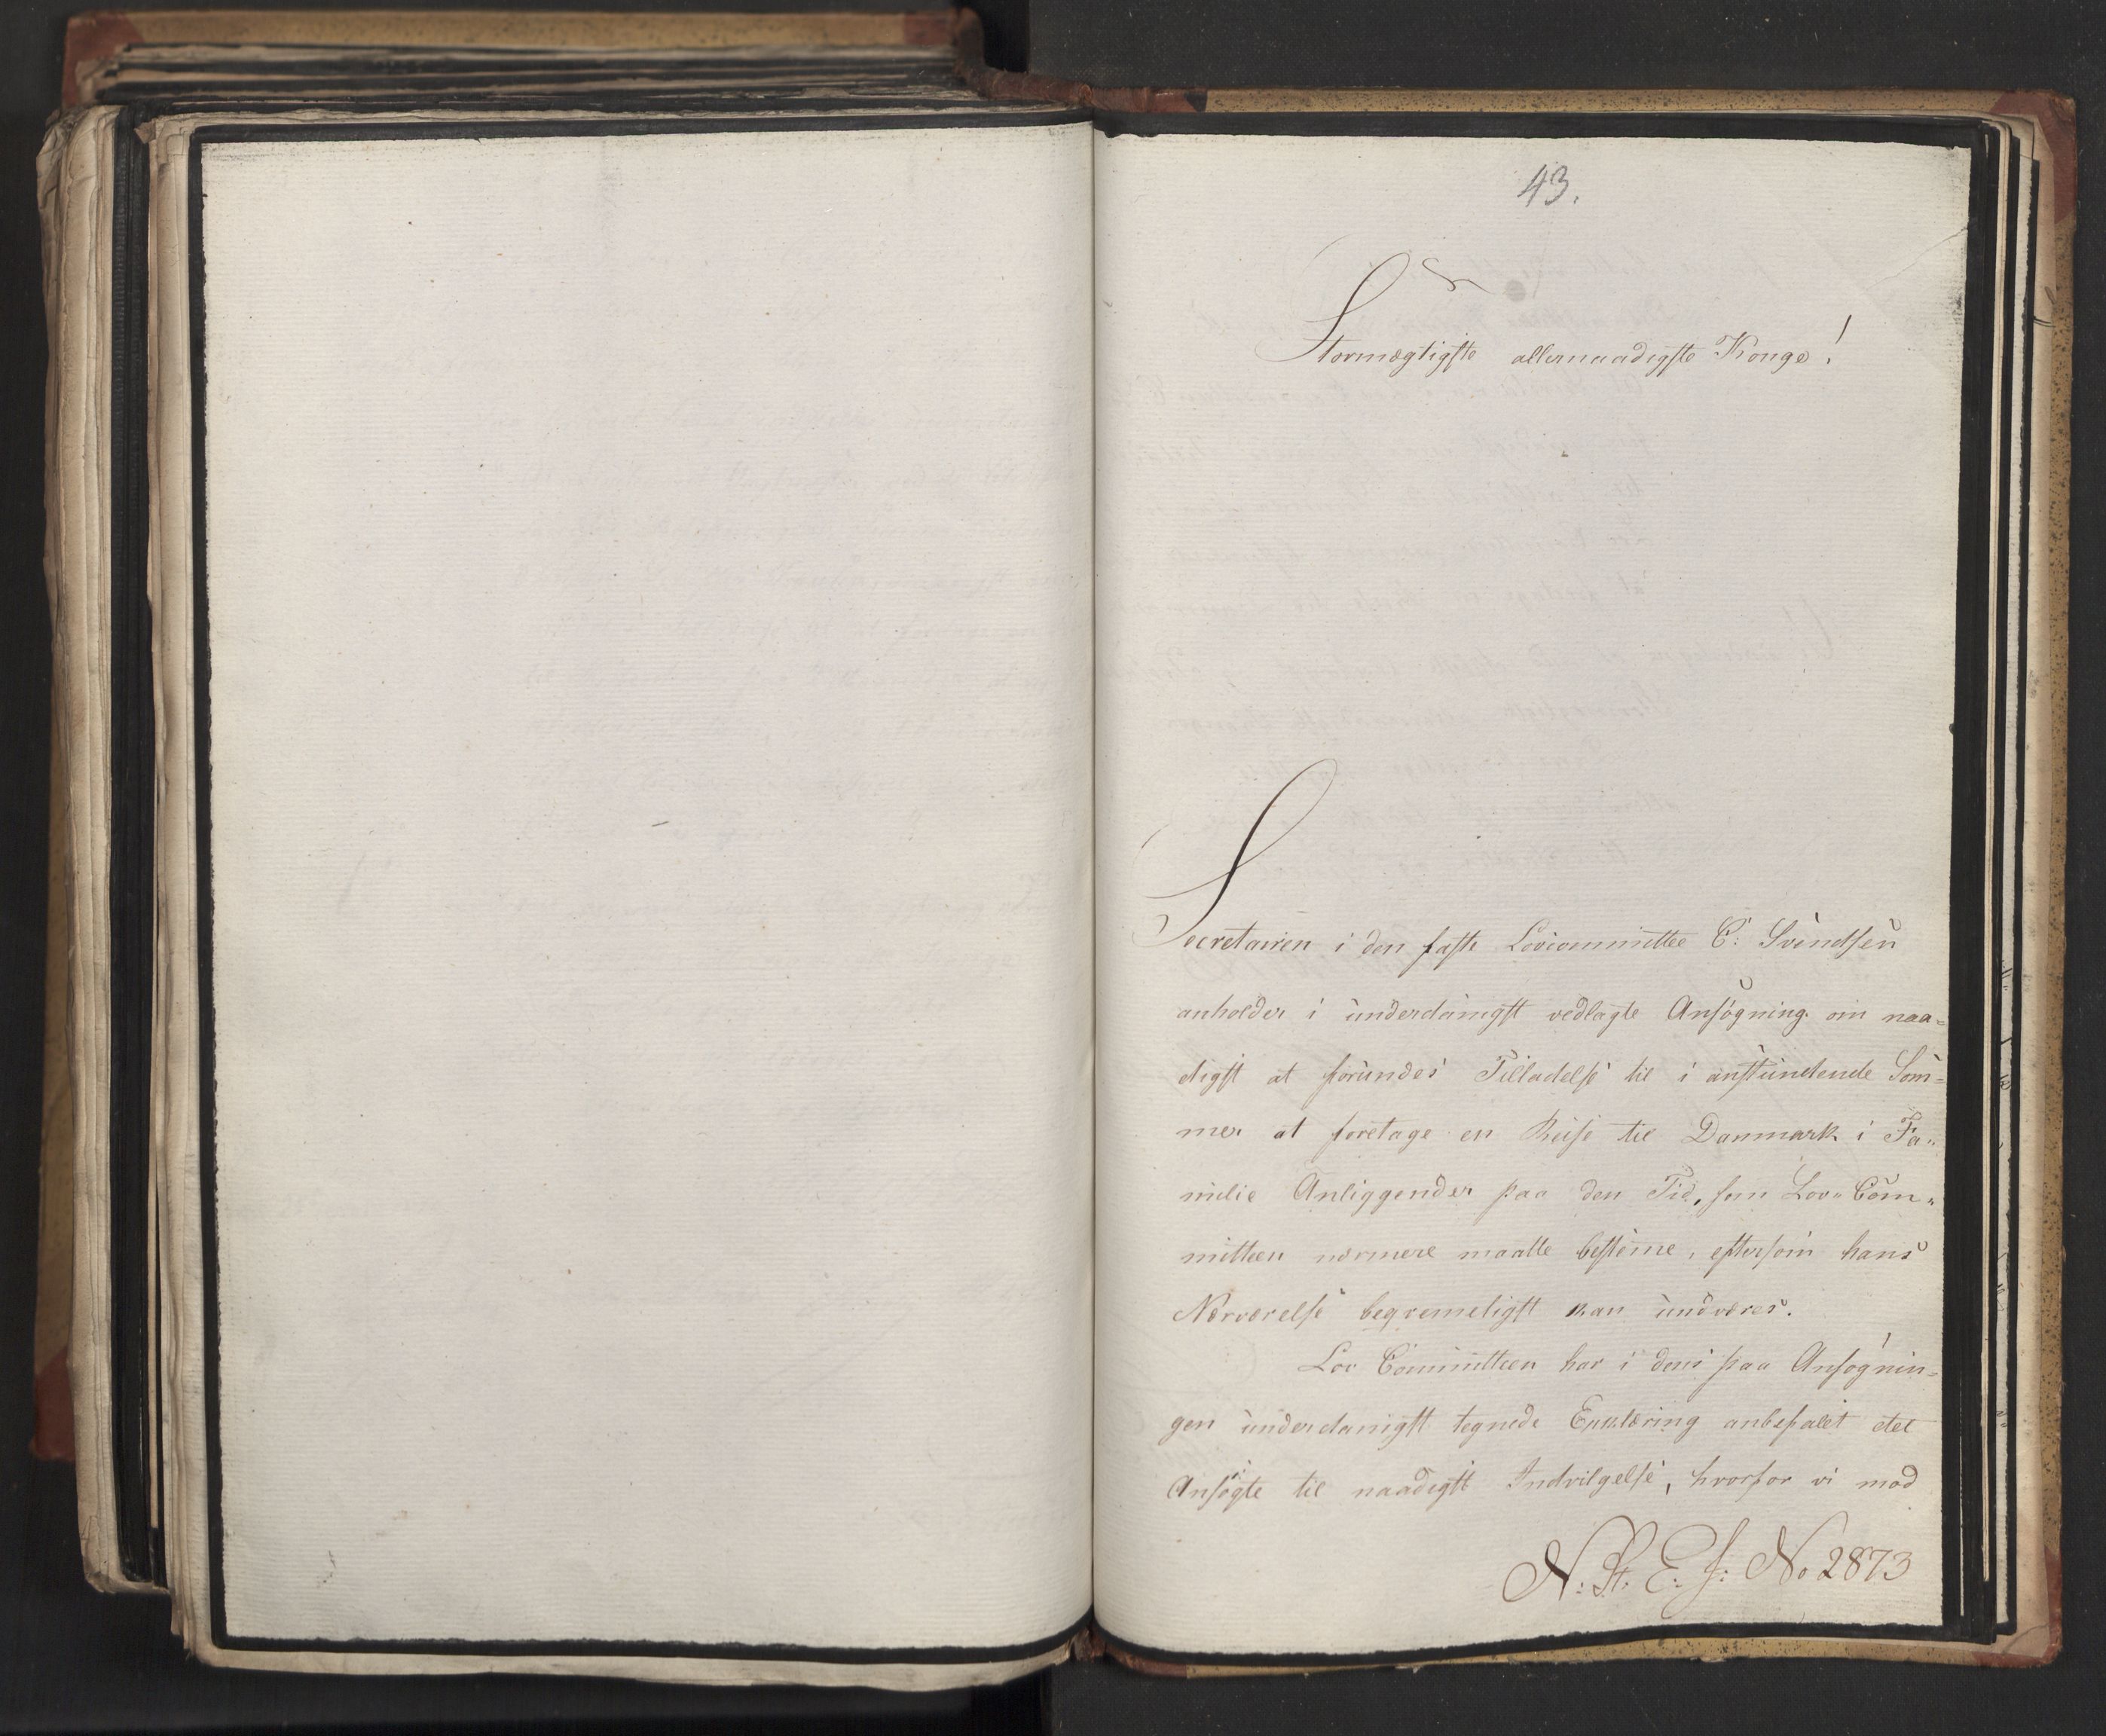 43.
Stormægtigste allernaadigste Konge!
Secretairen i den faste Lovcommittee C: Svendsen
anholder i underdanigst vedlagte Ansøgning om naa=
digst at forundes Tilladelse til i anstundende Som=
mer at foretage en Reise til Danmark i Fa=
milie Anliggender paa den Tid, som Lov=Com=
mitteen nærmere maatte besteme, eftersom hans
Nærværelse beqvemeligst kan undværes.
Lov Committeen har i dens paa Ansøgnin=
gen underdanigst tegnede Erklæring anbefalet det
Ansøgte til naadigst Indvilgelse, hvorfor vi med
N: St: E: J: No 2873